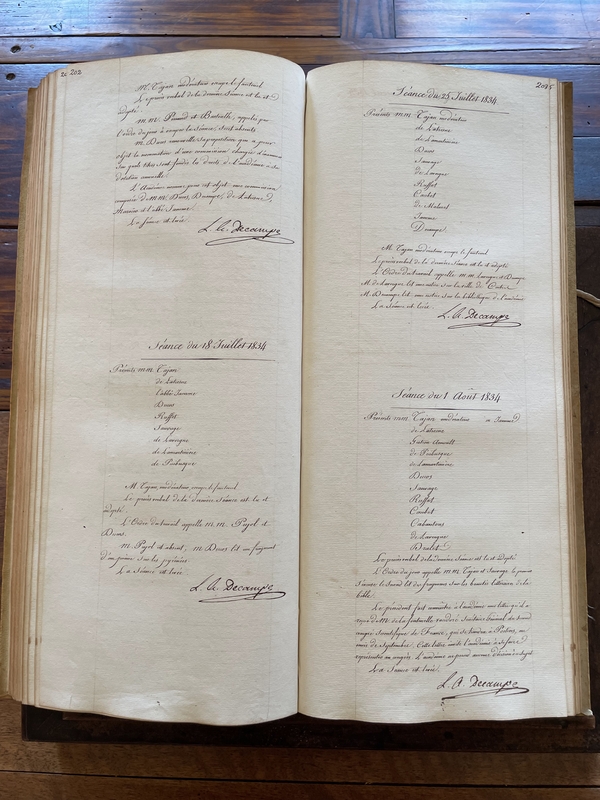 202
M. Tajan modérateur occupe le fauteuil
Le procès verbal de la dernière Séance est lu et
adopté.
M.M. Pinaud et Barthelle, appelés par
l'ordre du jour à occuper la Séance, sont absents
M. Ducos renouvelle sa proposition qui a pour
objet la nomination d'une commission chargée d'examiner
sur quels titres sont fondés les droits de l'académie à sa
dotation annuelle.
L'Académie nomme pour cet objet une commission
composée de M.M. Ducos, Dumège, de Latresne,
et l'abbé Jamme.
La séance est levée.
L. A. Decampe
Séance du 18 Juillet 1834
Présents M.M. Tajan
de Latresne
l'abbé Jamme
Ducos
Raffet
Sauvage
de Lavergne
de Lamartinière
de Puibusque
M. Tajan, modérateur, occupe le fauteuil
Le procès verbal de la dernière Séance est lu et
adopté.
L'Ordre du travail appelle M.M. Pujol et
Ducos.
M. Pujol est absent, M. Ducos lit un fragment
d'un poème sur les pyrénées
La Séance est levée
L. A. Decampe
Séance du 25 Juillet 1834
Présents M.M. Tajan modérateur
de Latresne
de Lamartinière
Ducos
Sauvage
de Lavergne
Raffet
Caubet
de Malaret
Jamme
Dumège
M. Tajan modérateur occupe le fauteuil
Le procès verbal de la dernière Séance est lu et adopté
L'Ordre du travail appelle M.M. Lavergne et Dumège
M. de Lavergne lit une notice sur la ville de
M. Dumège lit une notice sur la bibliothèque de l'académie
La Séance est levée
L. A. Decampe
Séance du 1 Août 1834
Présents M.M. Tajan modérateur Jamme
de Latresne
Gustin Arnoult
de Puibusque
de Lamartinière
Ducos
Sauvage
Raffet
Caubet
Cabantous
de Lavergne
Le procès verbal de la dernière Séance est lu et adopté
L'Ordre du jour appelle M.M. Tajan et Sauvage, le premier
le Second lit des fragmens sur les beautés littéraires de la
bible.
Le président fait connaître à l'académie une lettre qu'il a
reçue de M. de la fontenelle vaudoré Secrétaire Général du Second
congrès Scientifique de France, qui se tiendra à Poitiers, au
mois de Septembre. Cette lettre invite l'académie à se faire
représenter au congrès. L'académie ne prend aucune décision à ce Sujet.
La Séance est levée.
L. A. Decampe